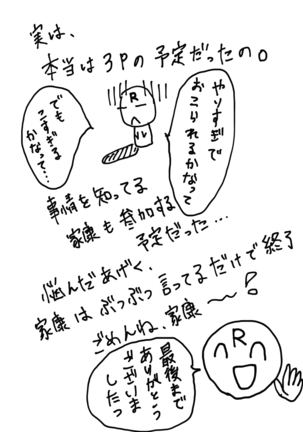 実は、
本当は3Pの予定だったの。
やりすぎで
おこられるかなって
でも
こすぎる
かなって…
R
事情を知ってる
家康も参加する
予定だった…
悩んだあげく、
家康はぶつぶつ言ってるだけで終了
ごめんね、家康〜!
R
最後まで
ありがとう
ございま
したっ